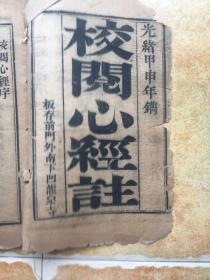 光緒甲申年鐫
校閱心經註
板存前門外南下凹龍泉寺
校閱心經序